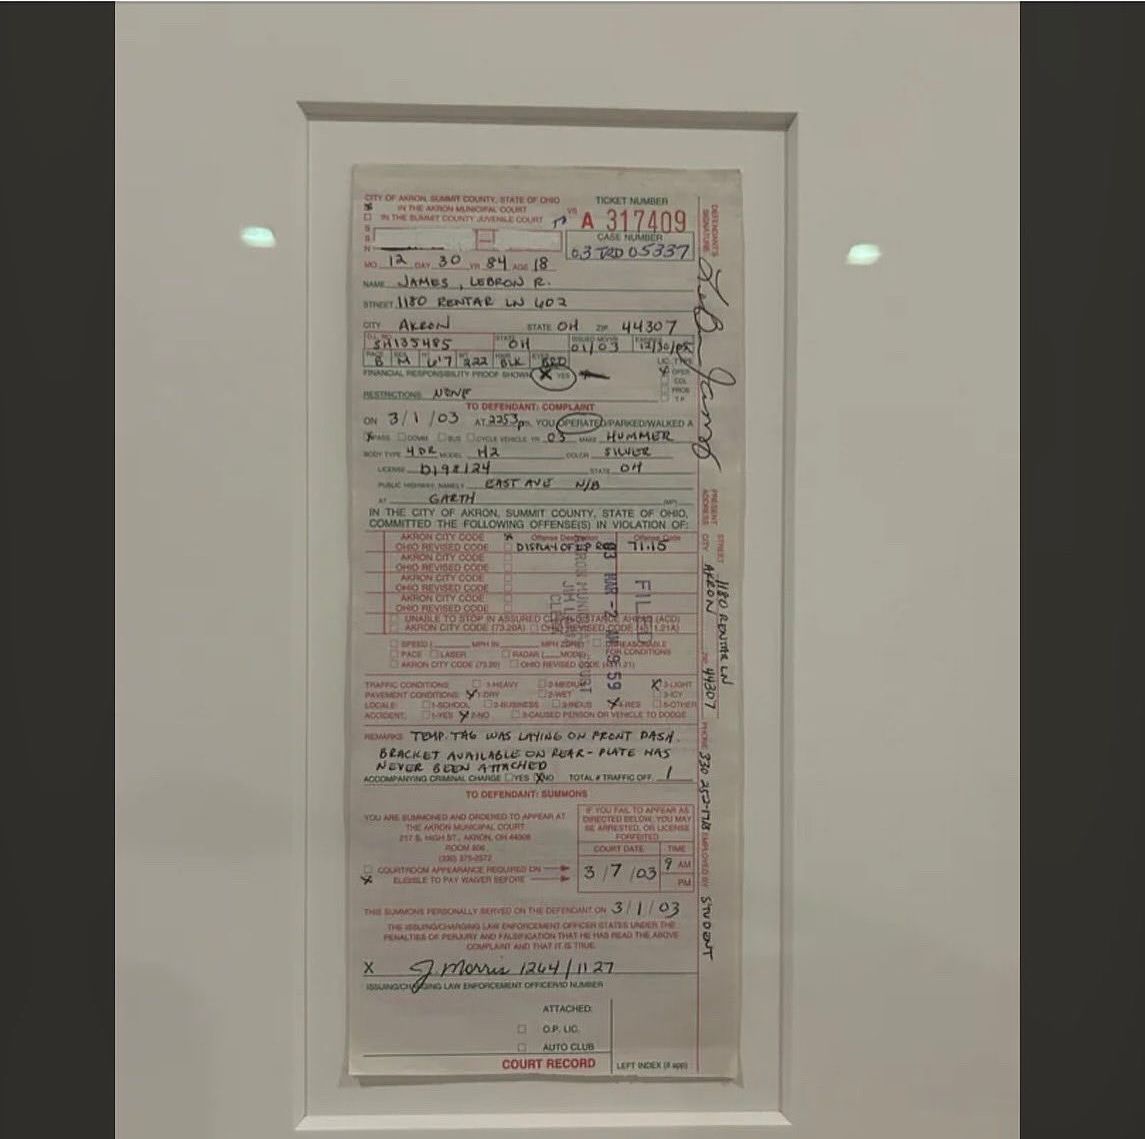 CITY OF AKRON, SUMMIT COUNTY, STATE OF OHIO
IN THE AKRON MUNICIPAL COURT
IN THE SUMMIT COUNTY JUVENILE COURT
TICKET NUMBER
A 317409
CASE NUMBER
03 TRD 05337
MO. 12 DAY 30 YR 84 AGE 18
NAME JAMES, LEBRON R.
STREET 1180 RENTAR LN 602
CITY AKRON STATE OH ZIP 44307
SH135485 OH 01/03
B M 6'7 222 BLK BRO
LIC. TYPE
OPER
CDL
PROB
T.P.
FINANCIAL RESPONSIBILITY PROOF SHOWN X YES
RESTRICTIONS NONE
TO DEFENDANT: COMPLAINT
ON 3/1/03 AT 2253 pm, YOU OPERATED/PARKED/WALKED A
PASS COMM BUS CYCLE VEHICLE YR 03 MAKE HUMMER
BODY TYPE 4DR MODEL H2 COLOR SILVER
LICENSE D198124 STATE OH
PUBLIC HIGHWAY, NAMELY EAST AVE N/B
AT GARTH (MP)
IN THE CITY OF AKRON, SUMMIT COUNTY, STATE OF OHIO,
COMMITTED THE FOLLOWING OFFENSE(S) IN VIOLATION OF:
AKRON CITY CODE Offense Description Offense Code
OHIO REVISED CODE DISPLAY OF 71.15
AKRON CITY CODE
OHIO REVISED CODE
AKRON CITY CODE
OHIO REVISED CODE
AKRON CITY CODE
OHIO REVISED CODE
UNABLE TO STOP IN ASSURED CLEAR DISTANCE AHEAD (ACD)
AKRON CITY CODE (73.20A) OHIO REVISED CODE
SPEED MPH IN MPH ZONE
PACE LASER RADAR MODE FOR CONDITIONS
AKRON CITY CODE (73.20) OHIO REVISED CODE
FILED
03 MAR -2 AM 9:59
AKRON MUNICIPAL COURT
TRAFFIC CONDITIONS: 1-HEAVY 2-MEDIUM 3-LIGHT
PAVEMENT CONDITIONS: 1-DRY 2-WET 3-ICY
LOCALE: 1-SCHOOL 2-BUSINESS 3-INDUS 4-RES 5-OTHER
ACCIDENT: 1-YES 2-NO 3-CAUSED PERSON OR VEHICLE TO DODGE
REMARKS TEMP. TAG WAS LAYING ON FRONT DASH.
BRACKET AVAILABLE ON REAR - PLATE HAS
NEVER BEEN ATTACHED
ACCOMPANYING CRIMINAL CHARGE YES NO TOTAL # TRAFFIC OFF. 1
TO DEFENDANT: SUMMONS
YOU ARE SUMMONED AND ORDERED TO APPEAR AT
THE AKRON MUNICIPAL COURT
217 S. HIGH ST., AKRON, OH 44308
(330) 375-2572
COURTROOM APPEARANCE REQUIRED ON
ELIGIBLE TO PAY WAIVER BEFORE
IF YOU FAIL TO APPEAR AS
DIRECTED BELOW, YOU MAY
BE ARRESTED, OR LICENSE
FORFEITED
COURT DATE TIME
3/7/03 9 AM
PM
THIS SUMMONS PERSONALLY SERVED ON THE DEFENDANT ON 3/1/03
THE ISSUING/CHARGING LAW ENFORCEMENT OFFICER STATES UNDER THE
PENALTIES OF PERJURY AND FALSIFICATION THAT HE HAS READ THE ABOVE
COMPLAINT AND THAT IT IS TRUE.
X J Morris 1264/1127
ISSUING/CHARGING LAW ENFORCEMENT OFFICER/ID NUMBER
ATTACHED:
O.P. LIC.
AUTO CLUB
COURT RECORD
LEFT INDEX (if app)
DEFENDANT'S
SIGNATURE
LeBron James
PRESENT
ADDRESS
STREET 1180 RENTAR LN
CITY AKRON
ZIP 44307
PHONE 330 252-1718
EMPLOYED BY STUDENT